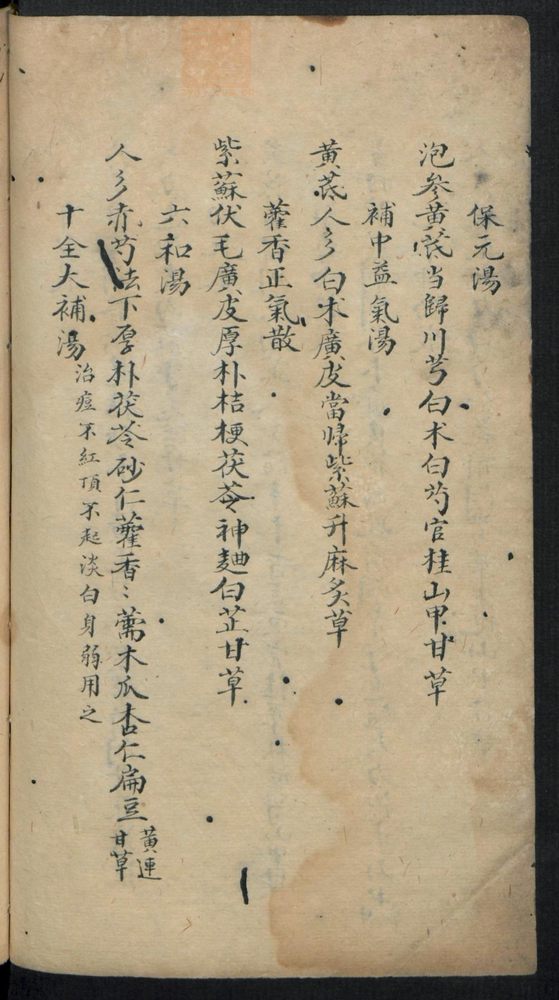 保元湯
泡參黃芪当歸川芎白术白芍官桂山甲甘草
補中益氣湯
黃芪人參白术廣皮當歸紫蘇升麻炙草
藿香正氣散
紫蘇伏毛廣皮厚朴桔梗茯苓神麯白芷甘草
六和湯
人參赤芍法下厚朴茯苓砂仁藿香香薷木瓜杏仁扁豆黃連甘草
十全大補湯 治痘不紅頂不起淡白身弱用之